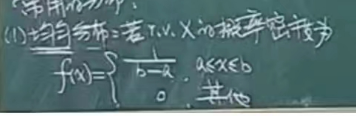 常用的分布:
(1) 均匀分布: 若 r.v. X 的概率密度为
f(x)={ 1/(b-a), a≤x≤b
0, 其他